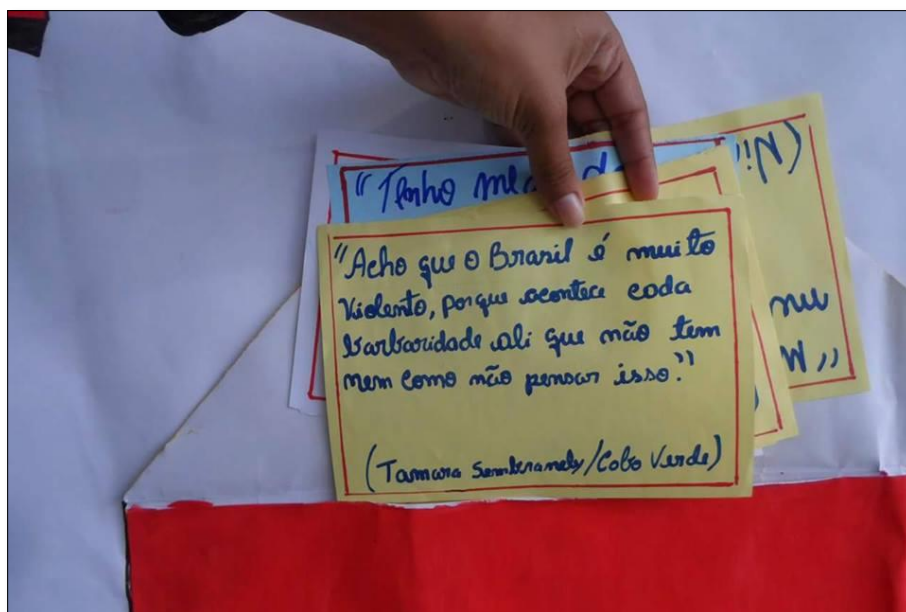 "Tenho
"Acho que o Brasil é muito
violento, porque acontece cada
barbaridade ali que não tem
nem como não pensar isso."
(Tamara Sembranely/Cabo Verde)